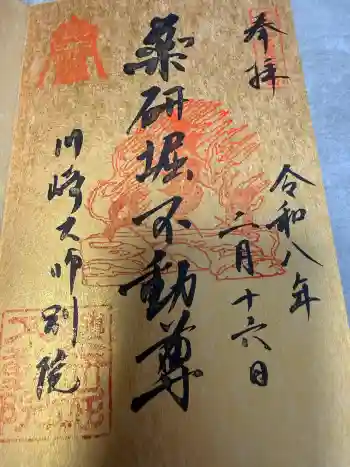 奉拝
令和八年
二月十六日
薬研堀不動尊
川崎大師別院